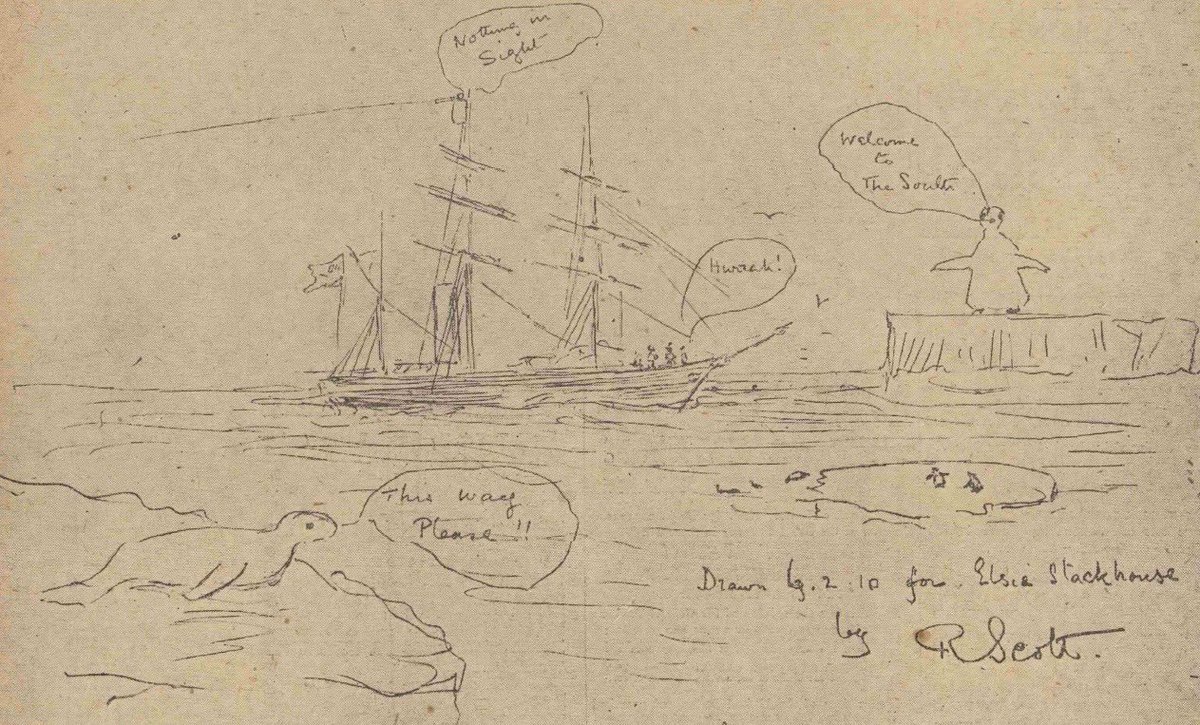 Nothing in
Sight
Welcome
to
The South
Hurrah!
This way
Please !!
Drawn 19.2.10 for Elsie Stackhouse
by R Scott.